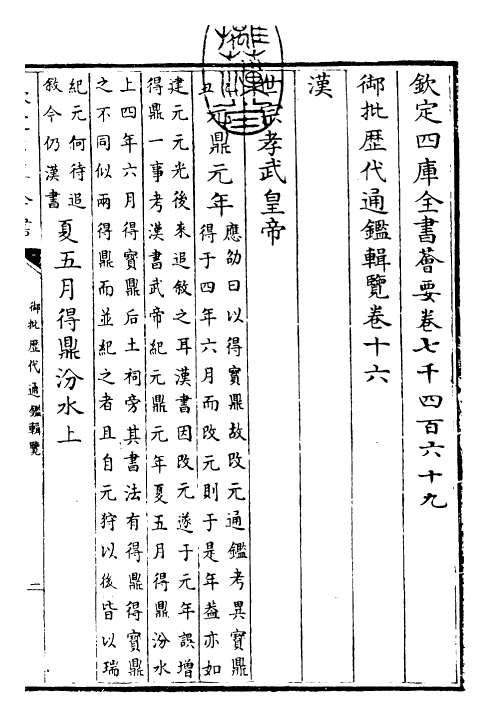 欽定四庫全書薈要卷七千四百六十九
御批歴代通鑑輯覽卷十六
漢
世宗孝武皇帝
丑元鼎元年
應劭曰以得寳鼎故改元通鑑考異寳鼎
得于四年六月而改元則于是年葢亦如
建元元光後來追敘之耳漢書因改元遂于元年誤增
得鼎一事考漢書武帝紀元鼎元年夏五月得鼎汾水
上四年六月得寳鼎后土祠旁其書法有得鼎得寳鼎
之不同似兩得鼎而並紀之者且自元狩以後皆以瑞
紀元何待追
敘今仍漢書
夏五月得鼎汾水上
御批歴代通鑑輯覽